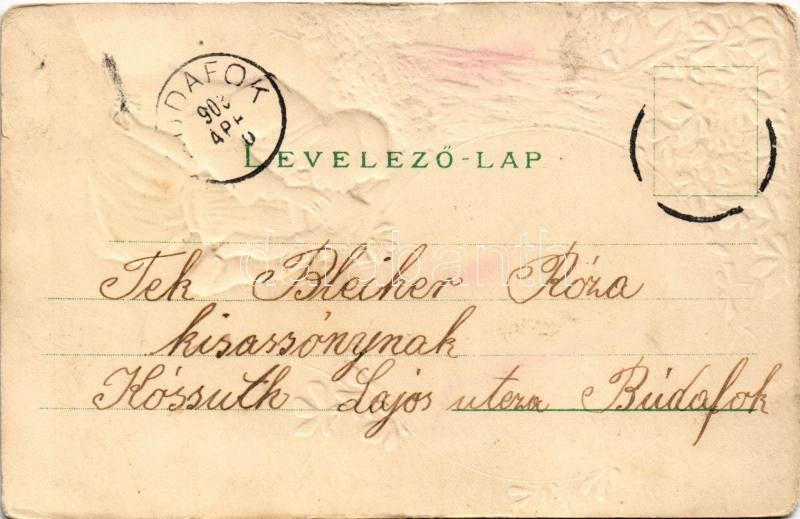 BUDAFOK
903
APR 5
LEVELEZŐ-LAP
darabanth
Tek Bleiher Róza
kisassónynak
Kóssuth Lajos utcza Búdafok